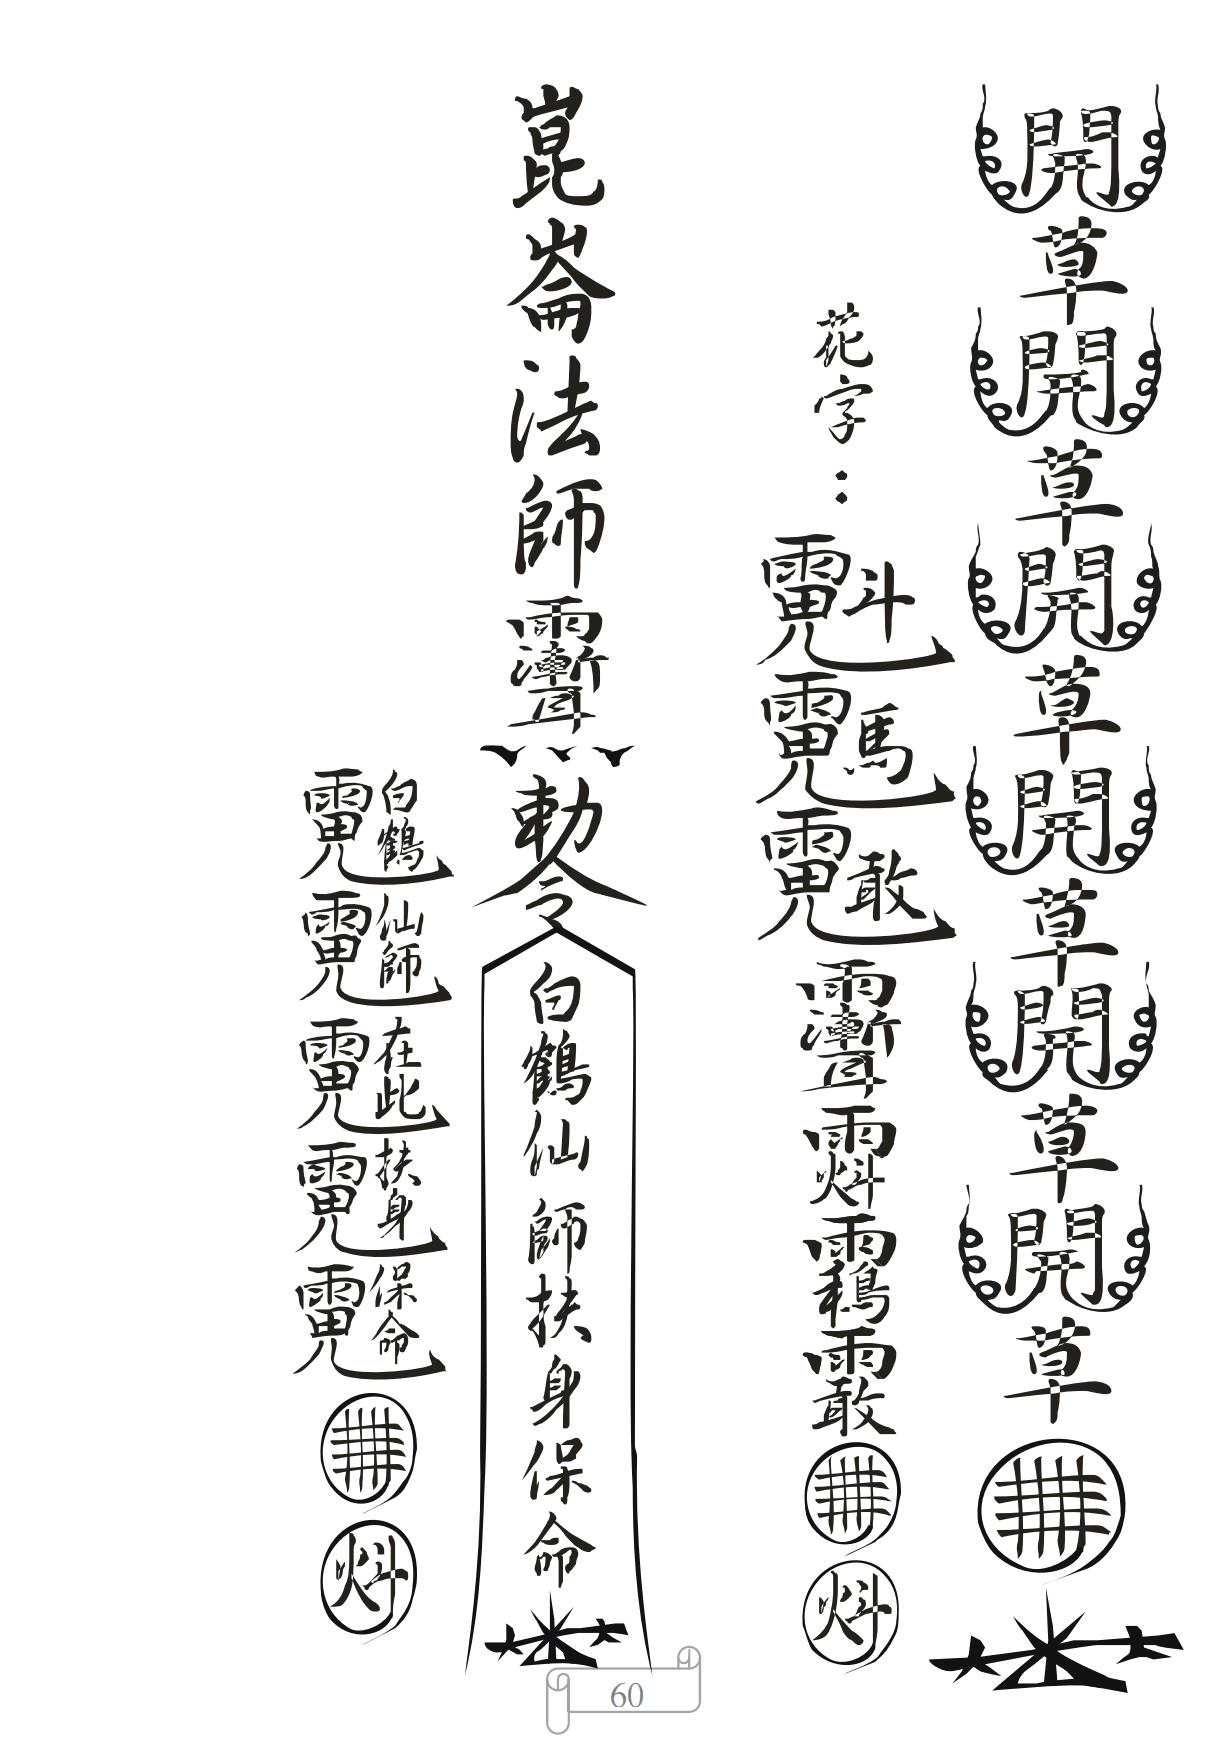 開草開草開草開草開草開草
花字：
斗
馬
敢
崑崙法師
勅令
白鶴仙師扶身保命
白鶴
仙師
在此
扶身
保命
60